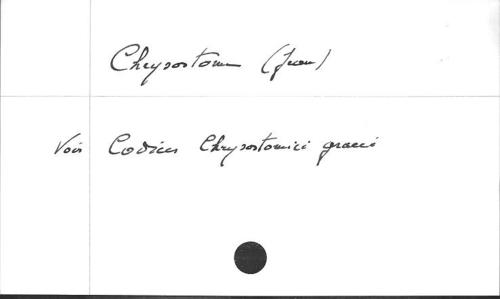 Chrysostome (Jean)
Voir Codices Chrysostomici graeci